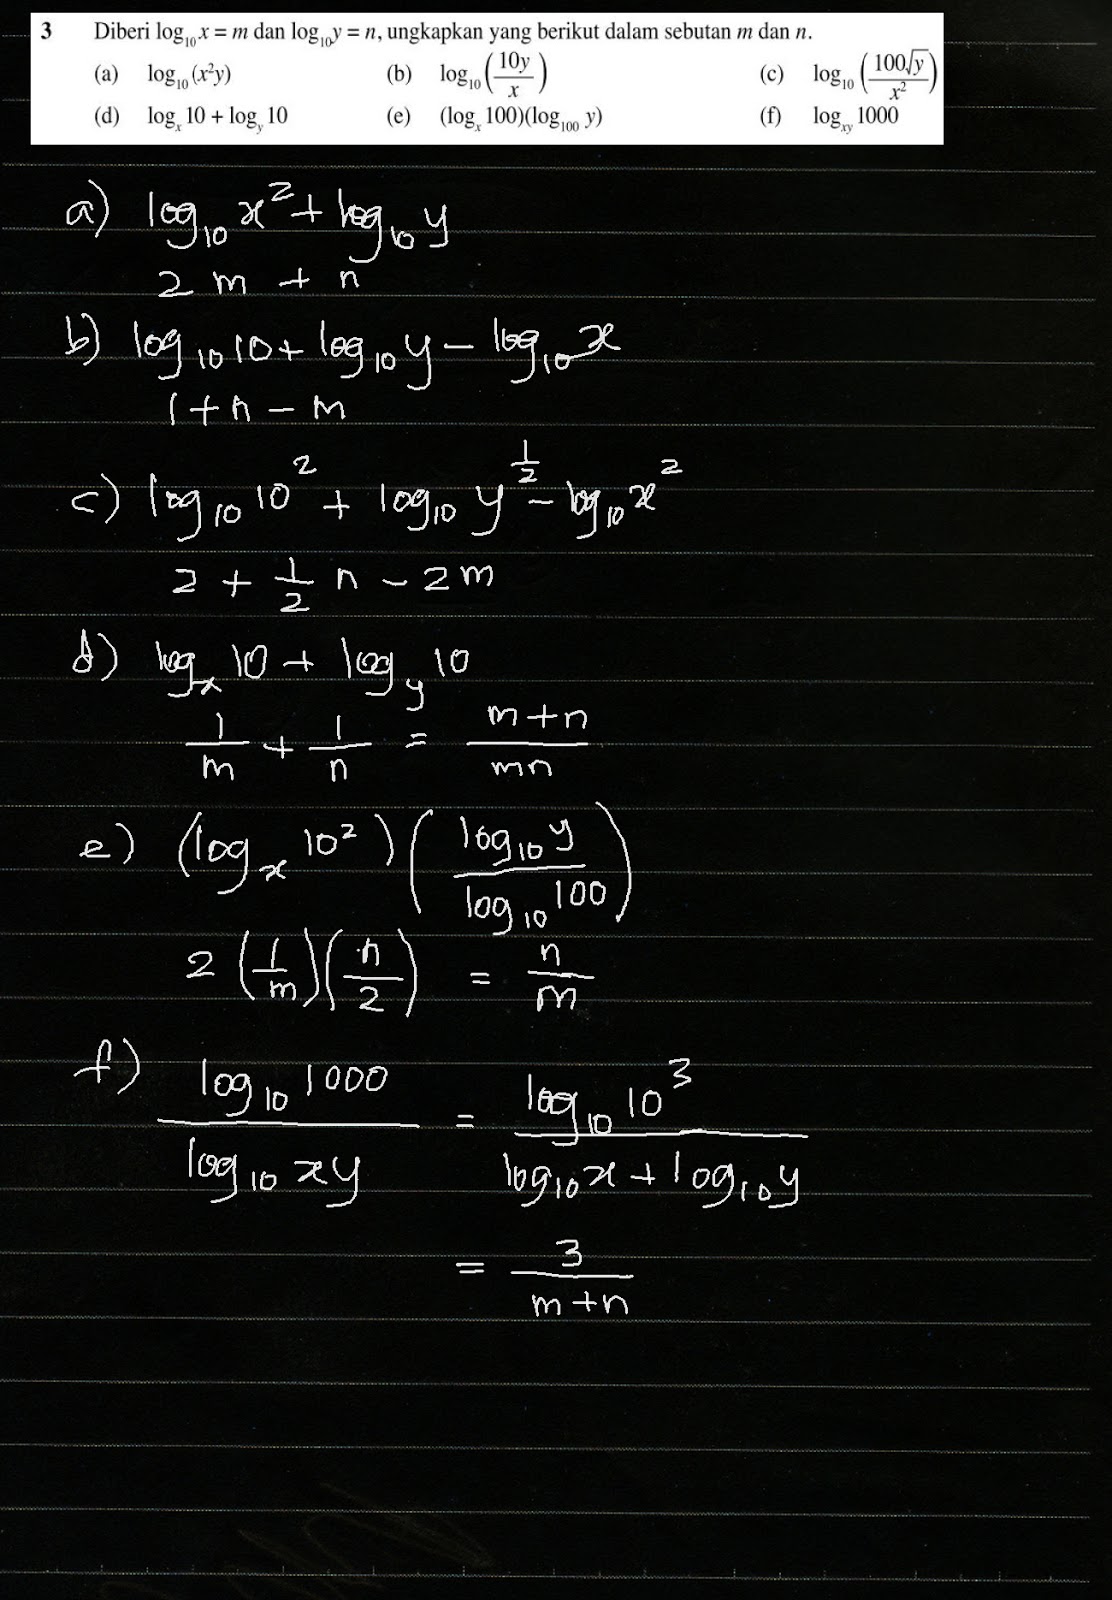 3 Diberi log₁₀ x = m dan log₁₀ y = n, ungkapkan yang berikut dalam sebutan m dan n.
(a) log₁₀ (x²y) (b) log₁₀ (10y/x) (c) log₁₀ (100√y/x²)
(d) logₓ 10 + log_y 10 (e) (logₓ 100)(log₁₀₀ y) (f) log_xy 1000
a) log₁₀ x² + log₁₀ y
2m + n
b) log₁₀ 10 + log₁₀ y − log₁₀ x
1 + n − m
c) log₁₀ 10² + log₁₀ y^(1/2) − log₁₀ x²
2 + 1/2 n − 2m
d) logₓ 10 + log_y 10
1/m + 1/n = m+n/mn
e) (logₓ 10²) (log₁₀ y/log₁₀ 100)
2 (1/m)(n/2) = n/m
f) log₁₀ 1000/log₁₀ xy = log₁₀ 10³/log₁₀ x + log₁₀ y
= 3/m+n